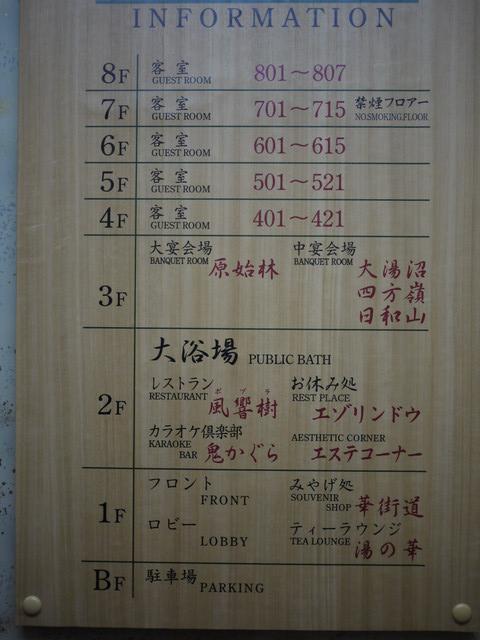 INFORMATION
8F 客室 GUEST ROOM 801～807
7F 客室 GUEST ROOM 701～715 禁煙フロアー NO.SMOKING.FLOOR
6F 客室 GUEST ROOM 601～615
5F 客室 GUEST ROOM 501～521
4F 客室 GUEST ROOM 401～421
3F
大宴会場 BANQUET ROOM 原始林
中宴会場 BANQUET ROOM 大湯沼
四方嶺
日和山
2F
大浴場 PUBLIC BATH
レストラン RESTAURANT 風響樹 ポプラ
お休み処 REST PLACE
エゾリンドウ
カラオケ倶楽部
KARAOKE BAR 鬼かぐら
AESTHETIC CORNER
エステコーナー
1F
フロント FRONT
みやげ処 SOUVENIR SHOP 華街道
ロビー LOBBY
ティーラウンジ TEA LOUNGE 湯の華
BF 駐車場 PARKING